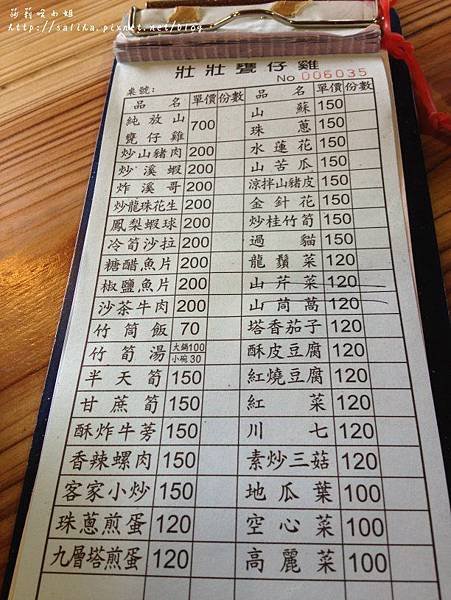 莎莉咪小姐
http://saliha.pixnet.net/blog
壯壯甕仔雞
No 006035
桌號：
品名 單價 份數 品名 單價 份數
純放山甕仔雞 700 山蘇 150
珠蔥 150
炒山豬肉 200 水蓮花 150
炒溪蝦 200 山苦瓜 150
炸溪哥 200 涼拌山豬皮 150
炒龍珠花生 200 金針花 150
鳳梨蝦球 200 炒桂竹筍 150
冷筍沙拉 200 過貓 150
糖醋魚片 200 龍鬚菜 120
椒鹽魚片 200 山芹菜 120
沙茶牛肉 200 山茼萵 120
竹筒飯 70 塔香茄子 120
竹筍湯 大鍋100 小碗30 酥皮豆腐 120
半天筍 150 紅燒豆腐 120
甘蔗筍 150 紅菜 120
酥炸牛蒡 150 川七 120
香辣螺肉 150 素炒三菇 120
客家小炒 150 地瓜葉 100
珠蔥煎蛋 120 空心菜 100
九層塔煎蛋 120 高麗菜 100